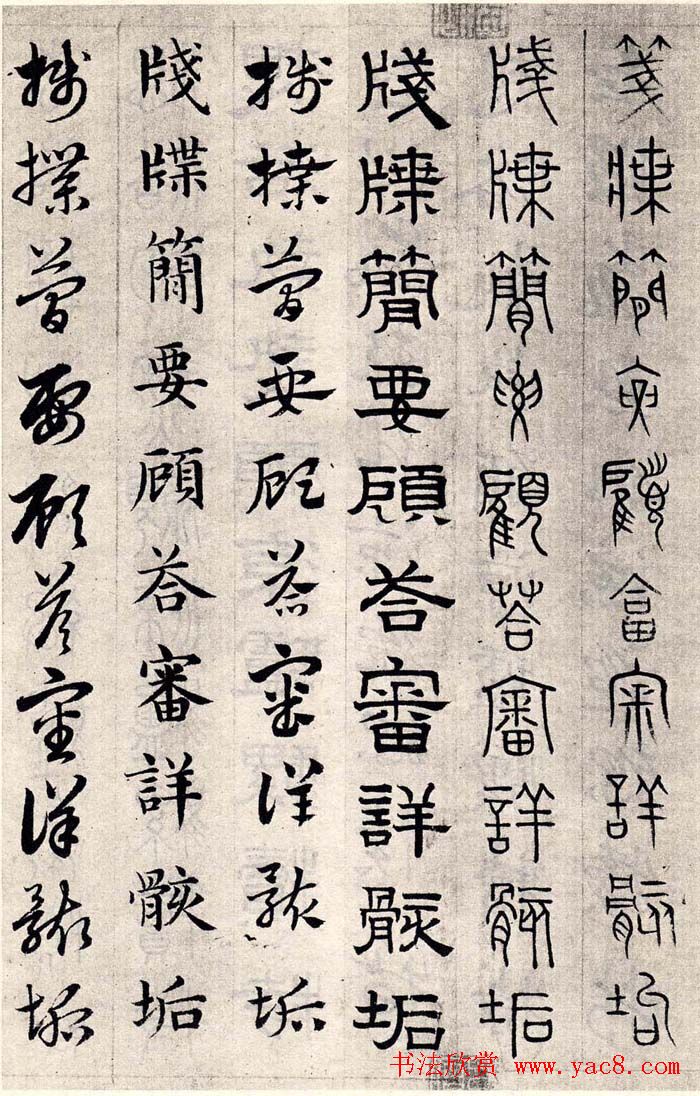 箋牒簡要顧答審詳骸垢
牋牒簡要顧荅審詳骸垢
牋牒簡要顧荅審詳骸垢
牋牒簡要顧荅審詳骸垢
牋牒簡要顧荅審詳骸垢
牋牒簡要顧荅審詳骸垢
书法欣赏 www.yac8.com